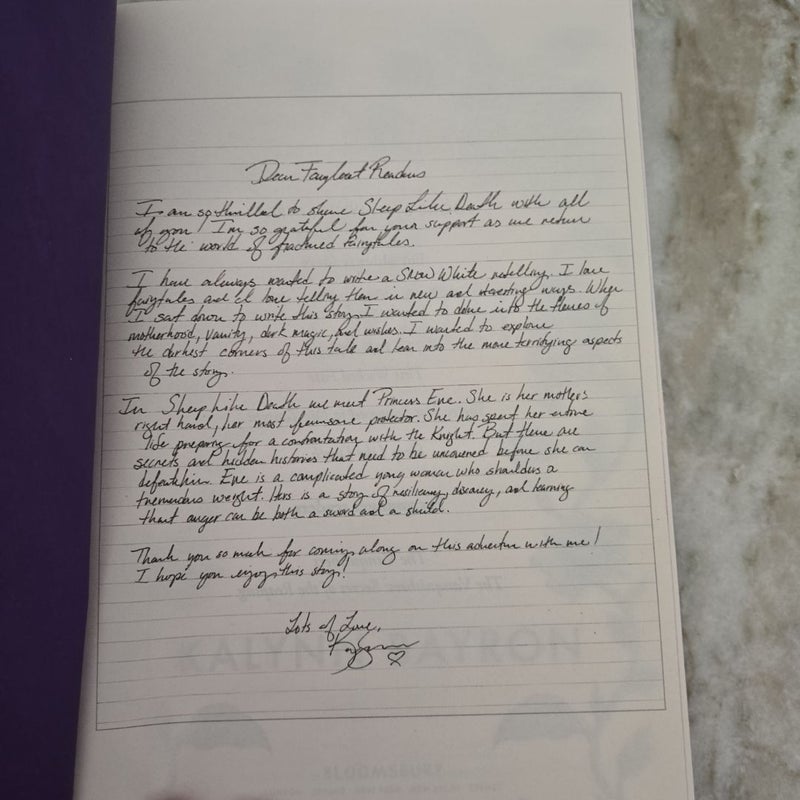 Dear Fairyloot Readers
I am so thrilled to share Sleep Like Death with all
of you! I'm so grateful for your support as we return
to the world of fractured fairytales.
I have always wanted to write a Snow White retelling. I love
fairytales and I love telling them in new and interesting ways. When
I sat down to write this story I wanted to delve into the themes of
motherhood, vanity, dark magic, and wishes. I wanted to explore
the darkest corners of this tale and lean into the more terrifying aspects
of the story.
In Sleep Like Death we meet Princess Eve. She is her mother's
right hand, her most fearsome protector. She has spent her entire
life preparing for a confrontation with the Knight. But there are
secrets and hidden histories that need to be uncovered before she can
defeat him. Eve is a complicated young woman who shoulders a
tremendous weight. Hers is a story of resiliency, discovery, and learning
that anger can be both a sword and a shield.
Thank you so much for coming along on this adventure with me!
I hope you enjoy this story!
Lots of Love,
KALYNN BAYRON
BLOOMSBURY